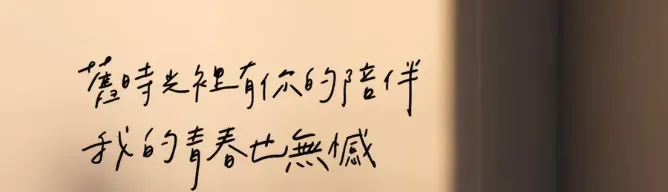 舊時光裡有你的陪伴
我的青春也無憾